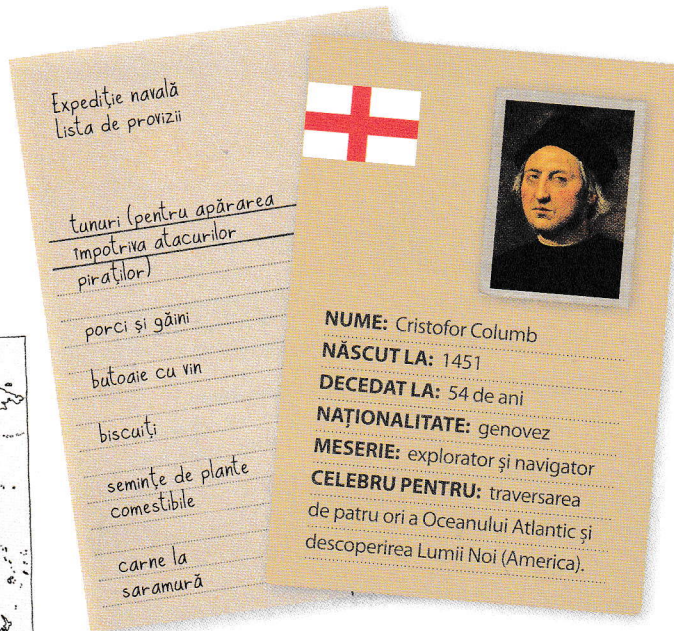 Expediție navală
Lista de provizii
tunuri (pentru apărarea
împotriva atacurilor
piraților)
porci și găini
butoaie cu vin
biscuiți
semințe de plante
comestibile
carne la
saramură
NUME: Cristofor Columb
NĂSCUT LA: 1451
DECEDAT LA: 54 de ani
NAȚIONALITATE: genovez
MESERIE: explorator și navigator
CELEBRU PENTRU: traversarea
de patru ori a Oceanului Atlantic și
descoperirea Lumii Noi (America).